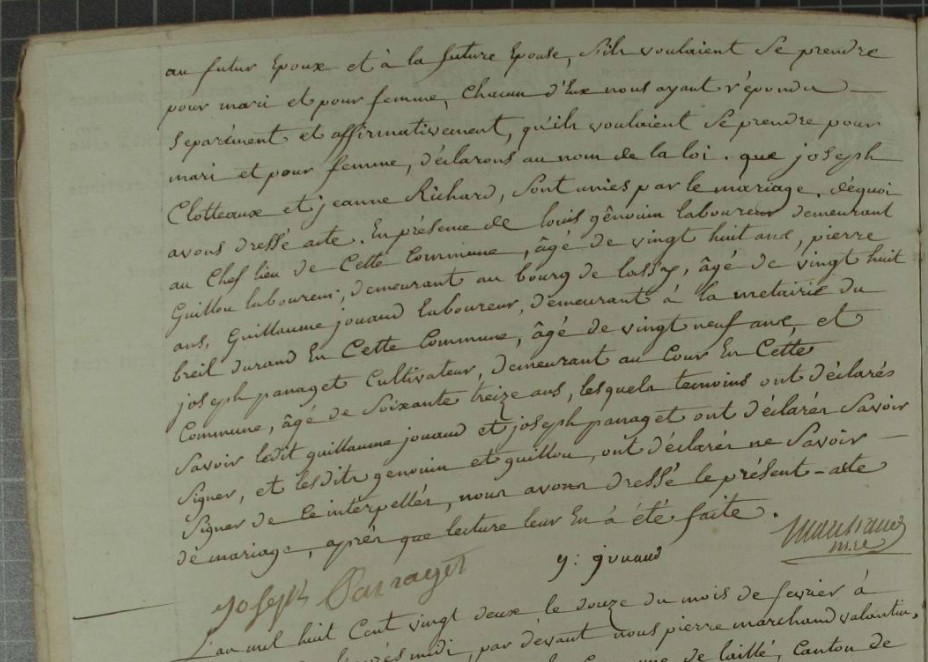 au futur Epoux et à la future Epouse, s'ils voulaient se prendre
pour mari et pour femme, Chacun d'Eux nous ayant répondu
séparément et affirmativement, qu'ils voulaient se prendre pour
mari et pour femme, déclarons au nom de la loi. que joseph
Clotteaux et jeanne Richard, sont unies par le mariage. déquoi
avons dressé acte. En présence de louis génouin laboureur demeurant
au Chef lieu de Cette Commune, âgé de vingt huit ans, pierre
Guillou laboureur, demeurant au bourg de lassy, âgé de vingt huit
ans, Guillaume jouaud laboureur, demeurant à la metairie du
breil durand En Cette Commune, âgé de vingt neuf ans, et
joseph panaget Cultivateur, demeurant au Cour En Cette
Commune, âgé de soixante treize ans, lesquels temoins ont déclarés
savoir ledit guillaume jouaud et joseph panaget ont déclarés savoir
signer, et lesdits genouin et guillou, ont déclarés ne savoir
signer de ce interpellés, nous avons dressé le présent acte
de mariage, après que lecture leur En à été faite.
joseph Panaget g: jouaud Marchand
mre
L'an mil huit Cent vingt deux le douze du mois de fevrier à
après midi, par dévant nous pierre marchand valentin,
de laillé, Canton de